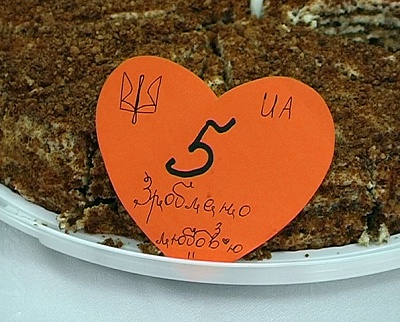 UA
5
Зроблено
з
любов♥ю